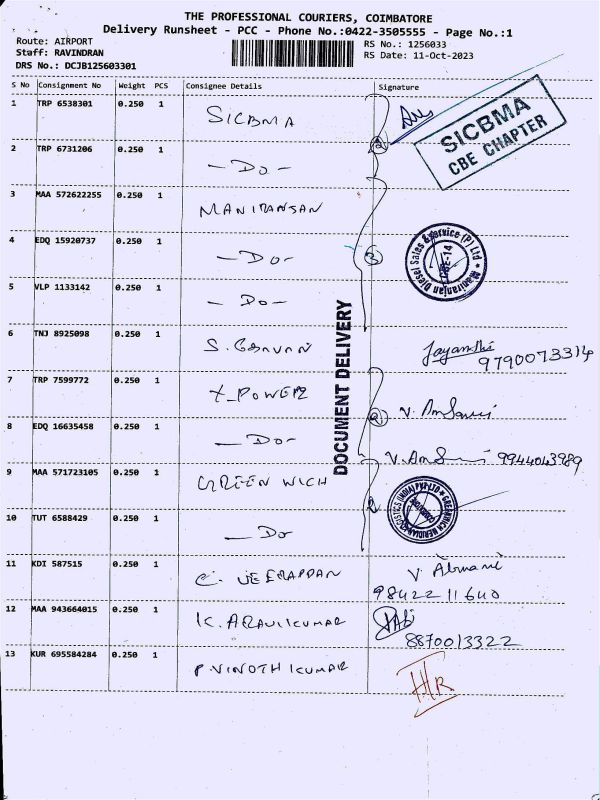 THE PROFESSIONAL COURIERS, COIMBATORE
Delivery Runsheet - PCC - Phone No.:0422-3505555 - Page No.:1
Route: AIRPORT
Staff: RAVINDRAN
DRS No.: DCJB125603301
RS No.: 1256033
RS Date: 11-Oct-2023
S No Consignment No Weight PCS Consignee Details Signature
1 TRP 6538301 0.250 1 SICBMA
SICBMA
CBE CHAPTER
2 TRP 6731206 0.250 1 — Do —
3 MAA 572622255 0.250 1
4 EDQ 15920737 0.250 1 — Do —
5 VLP 1133142 0.250 1 — Do —
DOCUMENT DELIVERY
6 TNJ 8925098 0.250 1 Jayanthi
9790073314
7 TRP 7599772 0.250 1 X-POWER
8 EDQ 16635458 0.250 1 — Do — 9944043989
9 MAA 571723105 0.250 1 GREEN WICH
10 TUT 6588429 0.250 1 — Do
11 KDI 587515 0.250 1 C. VEERAPPAN
98422 11640
12 MAA 943664015 0.250 1 K. ARAVIKUMAR
8870013322
13 KUR 695584284 0.250 1 P. VINOTH KUMAR